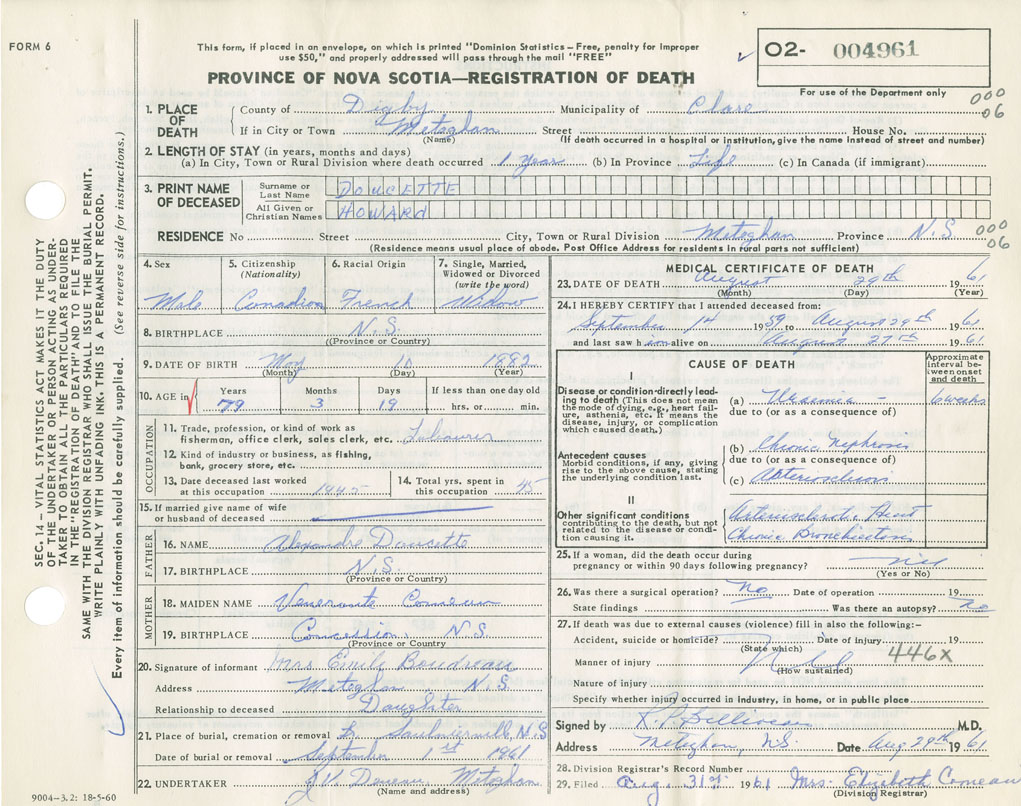 FORM 6
This form, if placed in an envelope, on which is printed "Dominion Statistics – Free, penalty for improper
use $50," and properly addressed will pass through the mail "FREE"
O2- 004961
PROVINCE OF NOVA SCOTIA—REGISTRATION OF DEATH
For use of the Department only
000
06
1. PLACE OF DEATH
County of Digby Municipality of Clare
If in City or Town Meteghan Street House No.
(Name) (If death occurred in a hospital or institution, give the name instead of street and number)
2. LENGTH OF STAY (in years, months and days)
(a) In City, Town or Rural Division where death occurred 1 Years (b) In Province Life (c) In Canada (if immigrant)
3. PRINT NAME OF DECEASED
Surname or Last Name DOUCETTE
All Given or Christian Names HOWARD
RESIDENCE No Street City, Town or Rural Division Meteghan Province N.S. 000
06
(Residence means usual place of abode. Post Office Address for residents in rural parts not sufficient)
4. Sex Male
5. Citizenship (Nationality) Canadian
6. Racial Origin French
7. Single, Married, Widowed or Divorced (write the word) Widow
8. BIRTHPLACE N.S.
((Province or Country)
9. DATE OF BIRTH May 10 1882
(Month) (Day) (Year)
10. AGE in Years 79 Months 3 Days 19 If less than one day old hrs. or min.
OCCUPATION
11. Trade, profession, or kind of work as
fisherman, office clerk, sales clerk, etc. Labourer
12. Kind of industry or business, as fishing,
bank, grocery store, etc.
13. Date deceased last worked at this occupation 1945
14. Total yrs. spent in this occupation 45
15. If married give name of wife
or husband of deceased
FATHER
16. NAME Alexandre Doucette
17. BIRTHPLACE N.S.
(Province or Country)
MOTHER
18. MAIDEN NAME Comeau
19. BIRTHPLACE Concession, N S.
(Province or Country
20. Signature of informant Mrs Emily Boudreau
Address Meteghan N.S.
Relationship to deceased Daughter
21. Place of burial, cremation or removal Saulnierville N.S
Date of burial or removal September 1st 1961
22. UNDERTAKER Meteghan
(Name and address)
9004-3.2: 18-5-60
MEDICAL CERTIFICATE OF DEATH
23. DATE OF DEATH August 29th 1961
(Month) (Day) (Year)
24. I HEREBY CERTIFY that I attended deceased from:
September 1st 1959 to August 29th 1961
and last saw him alive on August 27th 1961
CAUSE OF DEATH
Approximate interval between onset and death
I
Disease or condition directly leading to death (This does not mean the mode of dying, e.g., heart failure, asthenia, etc. It means the disease, injury, or complication which caused death.)
(a) Uraemia - 6 weeks
due to (or as a consequence of)
Antecedent causes
Morbid conditions, if any, giving rise to the above cause, stating the underlying condition last.
(b) Chronic nephrosis
due to (or as a consequence of)
(c)
II
Other significant conditions
contributing to the death, but not related to the disease or condition causing it.
Arteriosclerotic Heart
Chronic Bronchiectasis
25. If a woman, did the death occur during
pregnancy or within 90 days following pregnancy?
(Yes or No)
26. Was there a surgical operation? No Date of operation 19
State findings Was there an autopsy? no
27. If death was due to external causes (violence) fill in also the following:-
Accident, suicide or homicide? Date of injury 19
(State which) 446X
Manner of injury
(How sustained)
Nature of injury
Specify whether injury occurred in industry, in home, or in public place
Signed by M.D.
Address Meteghan, N.S. Date Aug 29th 1961
28. Division Registrar's Record Number
29. Filed Aug. 31st 1961 Mrs. Elizabeth Comeau
(Division Registrar)
SEC. 14 – VITAL STATISTICS ACT MAKES IT THE DUTY
OF THE UNDERTAKER OR PERSON ACTING AS UNDER-
TAKER TO OBTAIN ALL THE PARTICULARS REQUIRED
IN THE "REGISTRATION OF DEATH" AND TO FILE THE
SAME WITH THE DIVISION REGISTRAR WHO SHALL ISSUE THE BURIAL PERMIT.
WRITE PLAINLY WITH UNFADING INK. THIS IS A PERMANENT RECORD.
Every item of information should be carefully supplied. (See reverse side for instructions.)